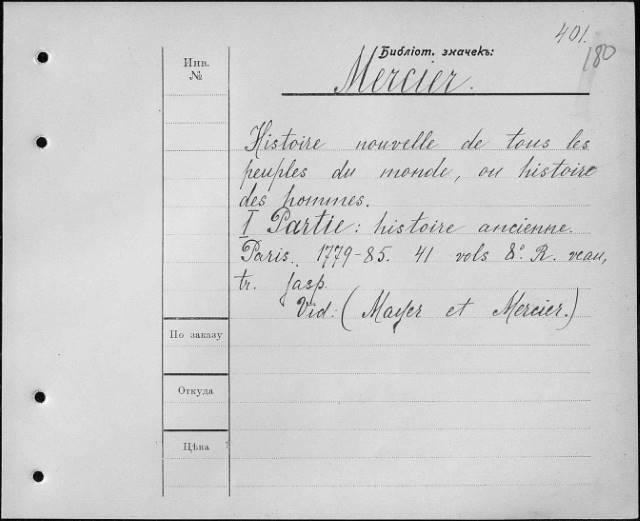 401.
180
Библіот. значекъ:
Mercier.
Инв.
№
Histoire nouvelle de tous les
peuples du monde, ou histoire
des hommes.
I Partie: histoire ancienne.
Paris. 1779-85. 41 vols 8º. R. veau,
tr. jasp.
Vid: (Mayer et Mercier.)
По заказу
Откуда
Цѣна